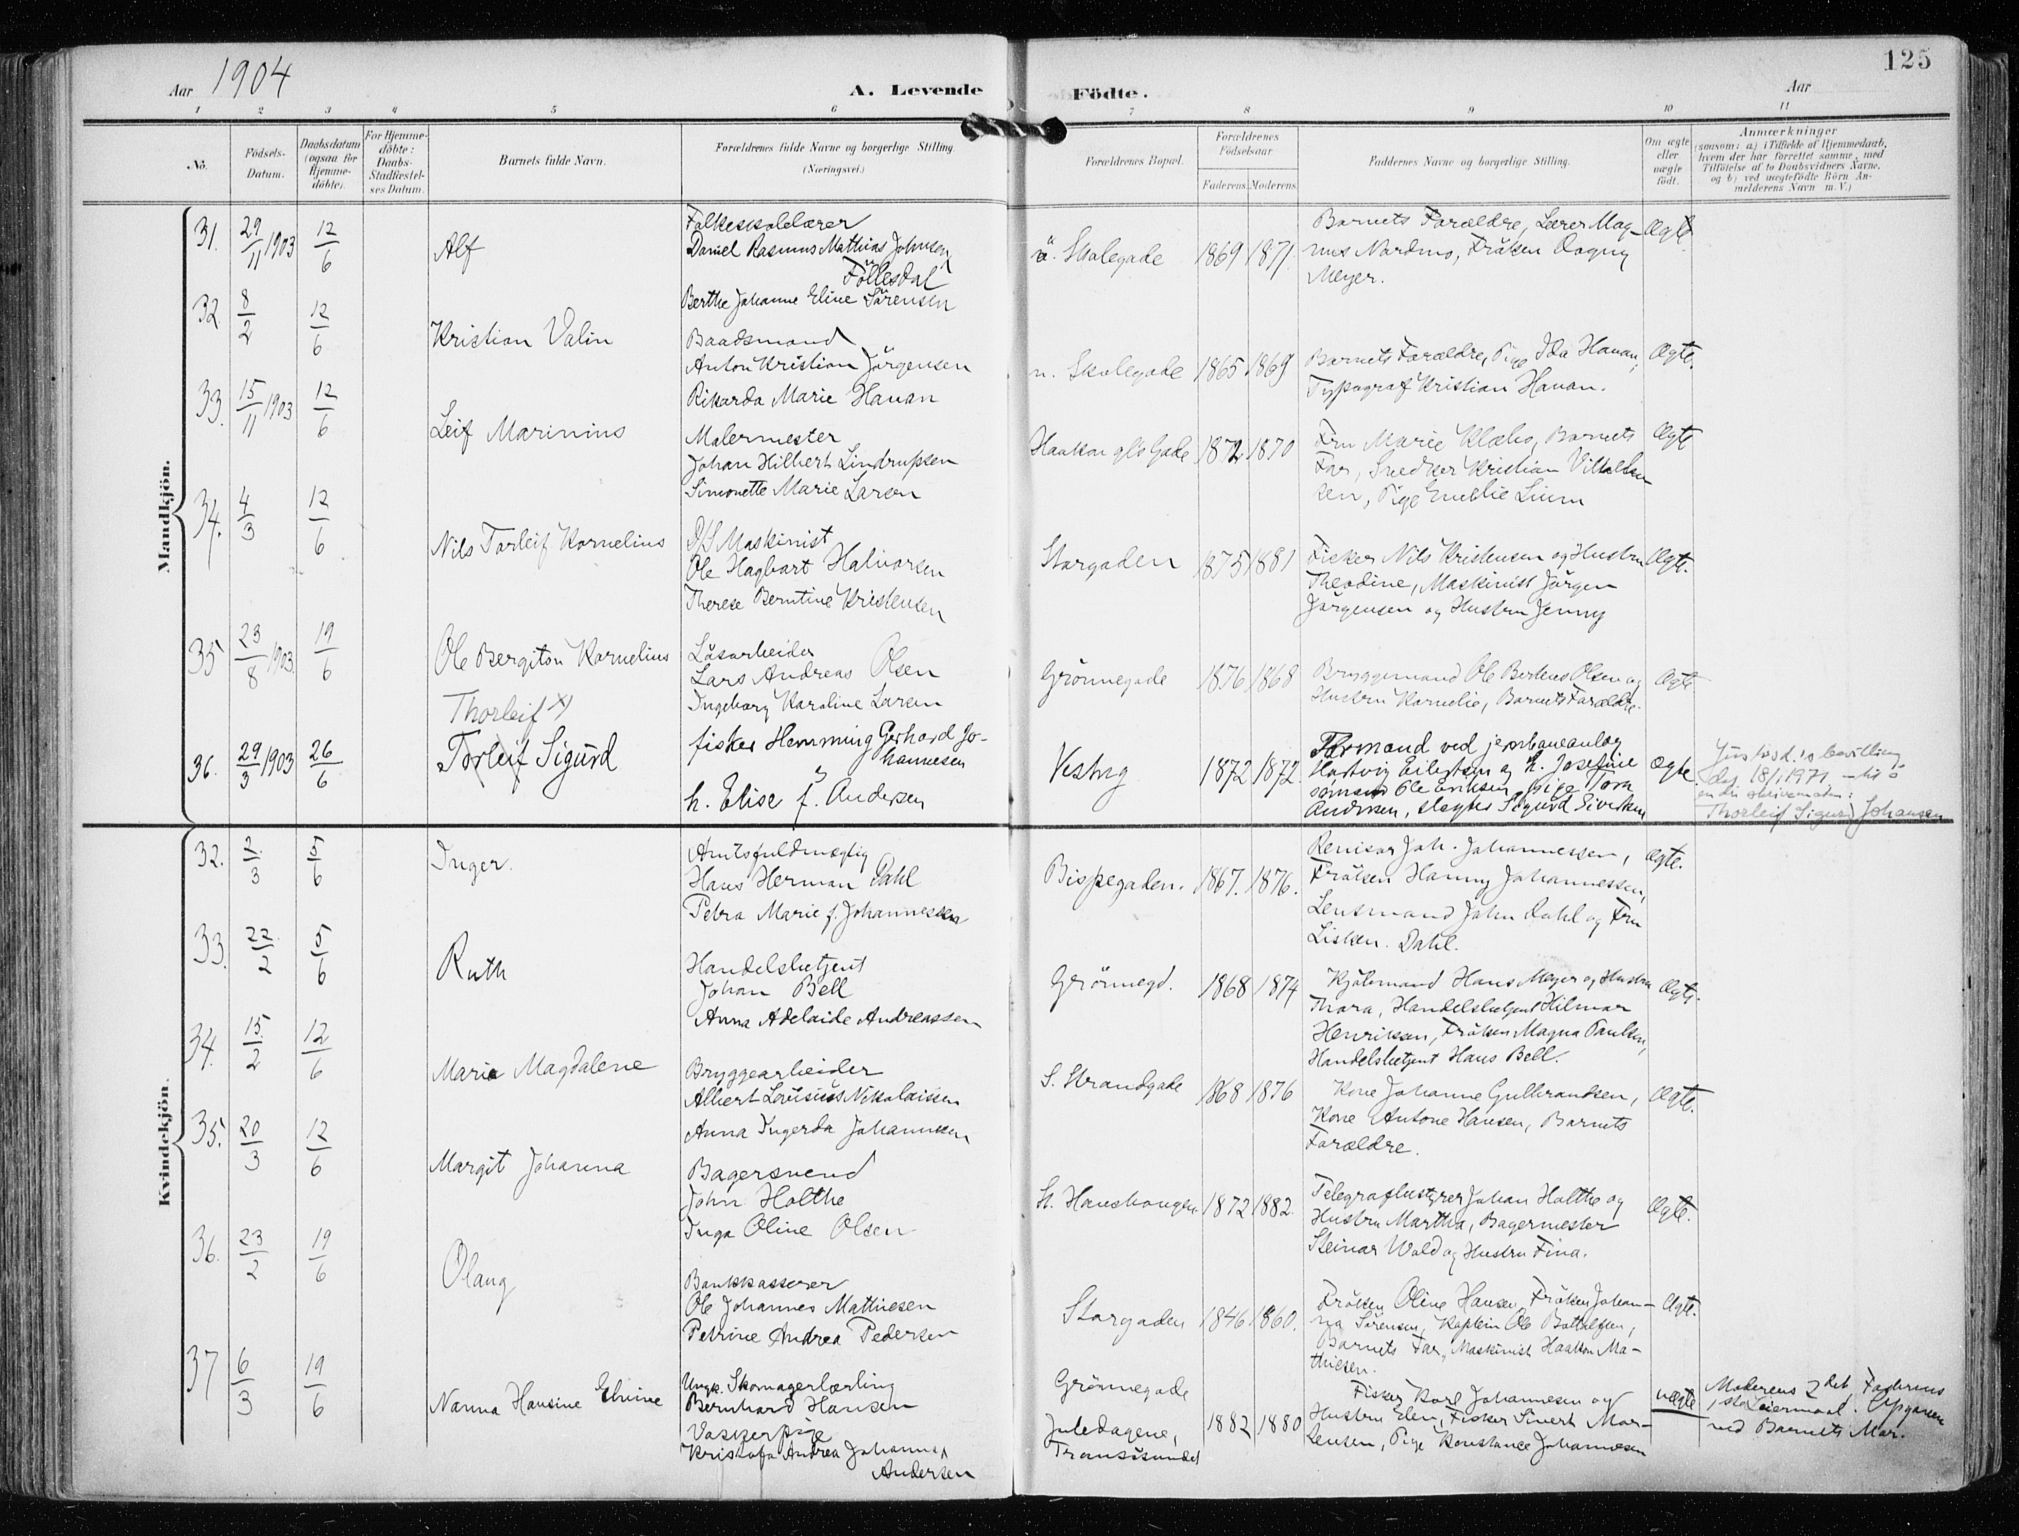 125
Aar 1904
A. Levende
Fødte.
Aar
1 2 3 4 5 6 7 8 9 10 11
No.
Fødsels-
Datum.
Daabsdatum
(ogsaa for
Hjemme-
døbte).
For Hjemme-
døbte:
Daabs-
Stadfæstel-
ses Datum.
Barnets fulde Navn.
Forældrenes fulde Navne og borgerlige Stilling.
(Næringsvei.)
Forældrenes Bopæl.
Forældrenes
Fødselsaar
Faderens. Moderens.
Faddernes Navne og borgerlige Stilling.
Om ægte
eller
uægte
født.
Anmærkninger
(saasom: a) i Tilfælde af Hjemmedaab,
hvem der har forrettet samme, med
Tilføielse af to Daabsvidners Navne,
og b) ved uægtefødte Børn An-
melderens Navn m. V.)
Mandkjön.
31. 29/11 1903 12/6 Alf
Folkeskolelærer
Daniel Rasmus Mathias Johnsen
Föllesdal
Berthe Johanne Eline Sørensen
Skolegade 1869 1871
Barnets Forældre, Lærer Mag-
nus Nordmo, Frøken Dagny
Meyer.
Ægte
32 8/2 12/6 Kristian Valin
Baadsmand
Anton Kristian Jørgensen
Rikarda Marie Hanan
n. Skolegade 1865 1869
Barnets Forældre, Pige Ida Hanan,
Typograf Kristian Hanan.
Ægte.
33. 15/11 1903 12/6 Leif Marinius
Malermester
Johan Hilbert Lindrupsen
Simonette Marie Larsen
Haakon gls Gade 1872 1870
Fru Marie Klæbo, Barnets
Far, Snedker Kristian
sen, Pige Emelie Lium
Ægte
34. 4/3 12/6 Nils Torleif Kornelius
D/S Maskinist
Ole Hagbart Halvorsen
Therese Berntine Kristensen
Storgaden 1875 1881
Fisker Nils Kristensen og Hustru
Theodine, Maskinist Jørgen
Jørgensen og Hustru Jenny
Ægte.
35 23/8 1903. 19/6 Ole Bergiton Kornelius
Løsarbeider
Lars Andreas Olsen
Ingeborg Karoline Larsen
Grønnegade 1876 1868
Bryggemand Ole Bertheus Olsen og
Hustru Kornelie, Barnets Forældre.
Ægte
Thorleif x)
36. 29/3 1903 26/6 Torleif Sigurd
fisker Hemming Gerhard Jo-
hannesen
h. Elise f. Andersen
Vestreg 1872 1872.
Formand ved jernbaneanlæg
Hartvig Eilertsen og h. Josefine
Ole Eriksen, pige Tora
Andersen, Sigurd Sivertsen
Ægte.
Justisd.'s bevilling
dat. 18/1 1971 – til å
endre skrivemåten:
Thorleif Sigurd Johansen
Kvindekjön.
32. 2/3 5/6 Inger.
Amtsfuldmægtig
Hans Herman Dahl
Petra Marie f. Johannessen
Bispegaden. 1867. 1876.
Revisor Joh. Johannessen,
Frøken Hanny Johannessen,
Lensmand John Dahl og Fru
Lisken Dahl.
Ægte.
33. 22/2 5/6 Ruth
Handelsbetjent
Johan Bell
Anna Adelaide Andreassen
Grønnegd. 1868 1874
Kjøbmand Hans Meyer og Hustru
Thora, Handelsbetjent Hilmar
Henriksen, Frøken Magna Paulsen,
Handelsbetjent Hans Bell.
Ægte.
34. 15/2 12/6 Marie Magdalene
Bryggearbeider
Albert Lovisius Nikolaissen
Anna Ingerda Johannesen
S. Strandgade 1868 1876
Kone Johanne Gulbrandsen,
Kone Antone Hansen, Barnets
Forældre.
Ægte.
35. 20/3 12/6 Margit Johanna
Bagersvend
John Holthe
Inga Oline Olsen
St. Hanshaugen 1872 1882.
Telegrafbestyrer Johan Holthe og
Hustru Martha, Bagermester
Steinar Wold og Hustru Fina.
Ægte.
36. 23/2 19/6 Olaug
Bankkasserer
Ole Johannes Mathiesen
Petrine Andrea Pedersen
Storgaden 1846 1860.
Frøken Oline Hansen, Frøken Johan-
na Sørensen, Kaptein Ole Bottolfsen,
Barnets Far, Maskinist Haakon Ma-
thiesen.
Ægte.
37 6/3 19/6 Nanna Hansine Elvine
Ungk. Skomagerlærling
Bernhard Hansen
Vaskerpige
Kristofa Andrea Johanna
Andersen
Grønnegade
Juledagene,
Tromsøsundet
1882 1880
Fisker Karl Johannesen og
Hustru Elen, Fisker Sivert Mor-
tensen, Pige Konstance Johannesen
uægte
Moderens 2det, Faderens
1ste Leiermaal. Opgaven
ved Barnets Mor.